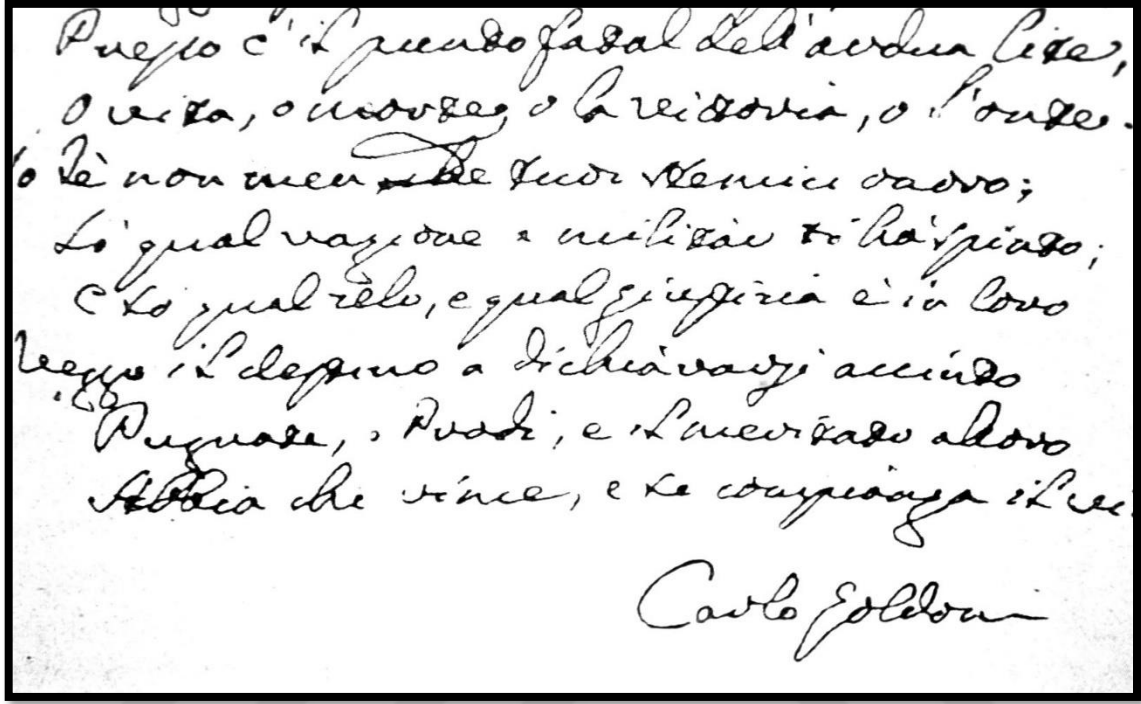 Questo è il punto fatal dell'ardua lite,
O vita, o morte, o la vittoria, o l'onte.
non men che tuoi nemici
Sò qual ragione a militar ti hà spinto;
E sò qual zelo, e qual giustizia è in loro
Veggo il destino a dichiararsi accinto
Pugnate, o Prodi, e il meritato alloro
Abbia chi vince, e se compianga il
Carlo Goldoni